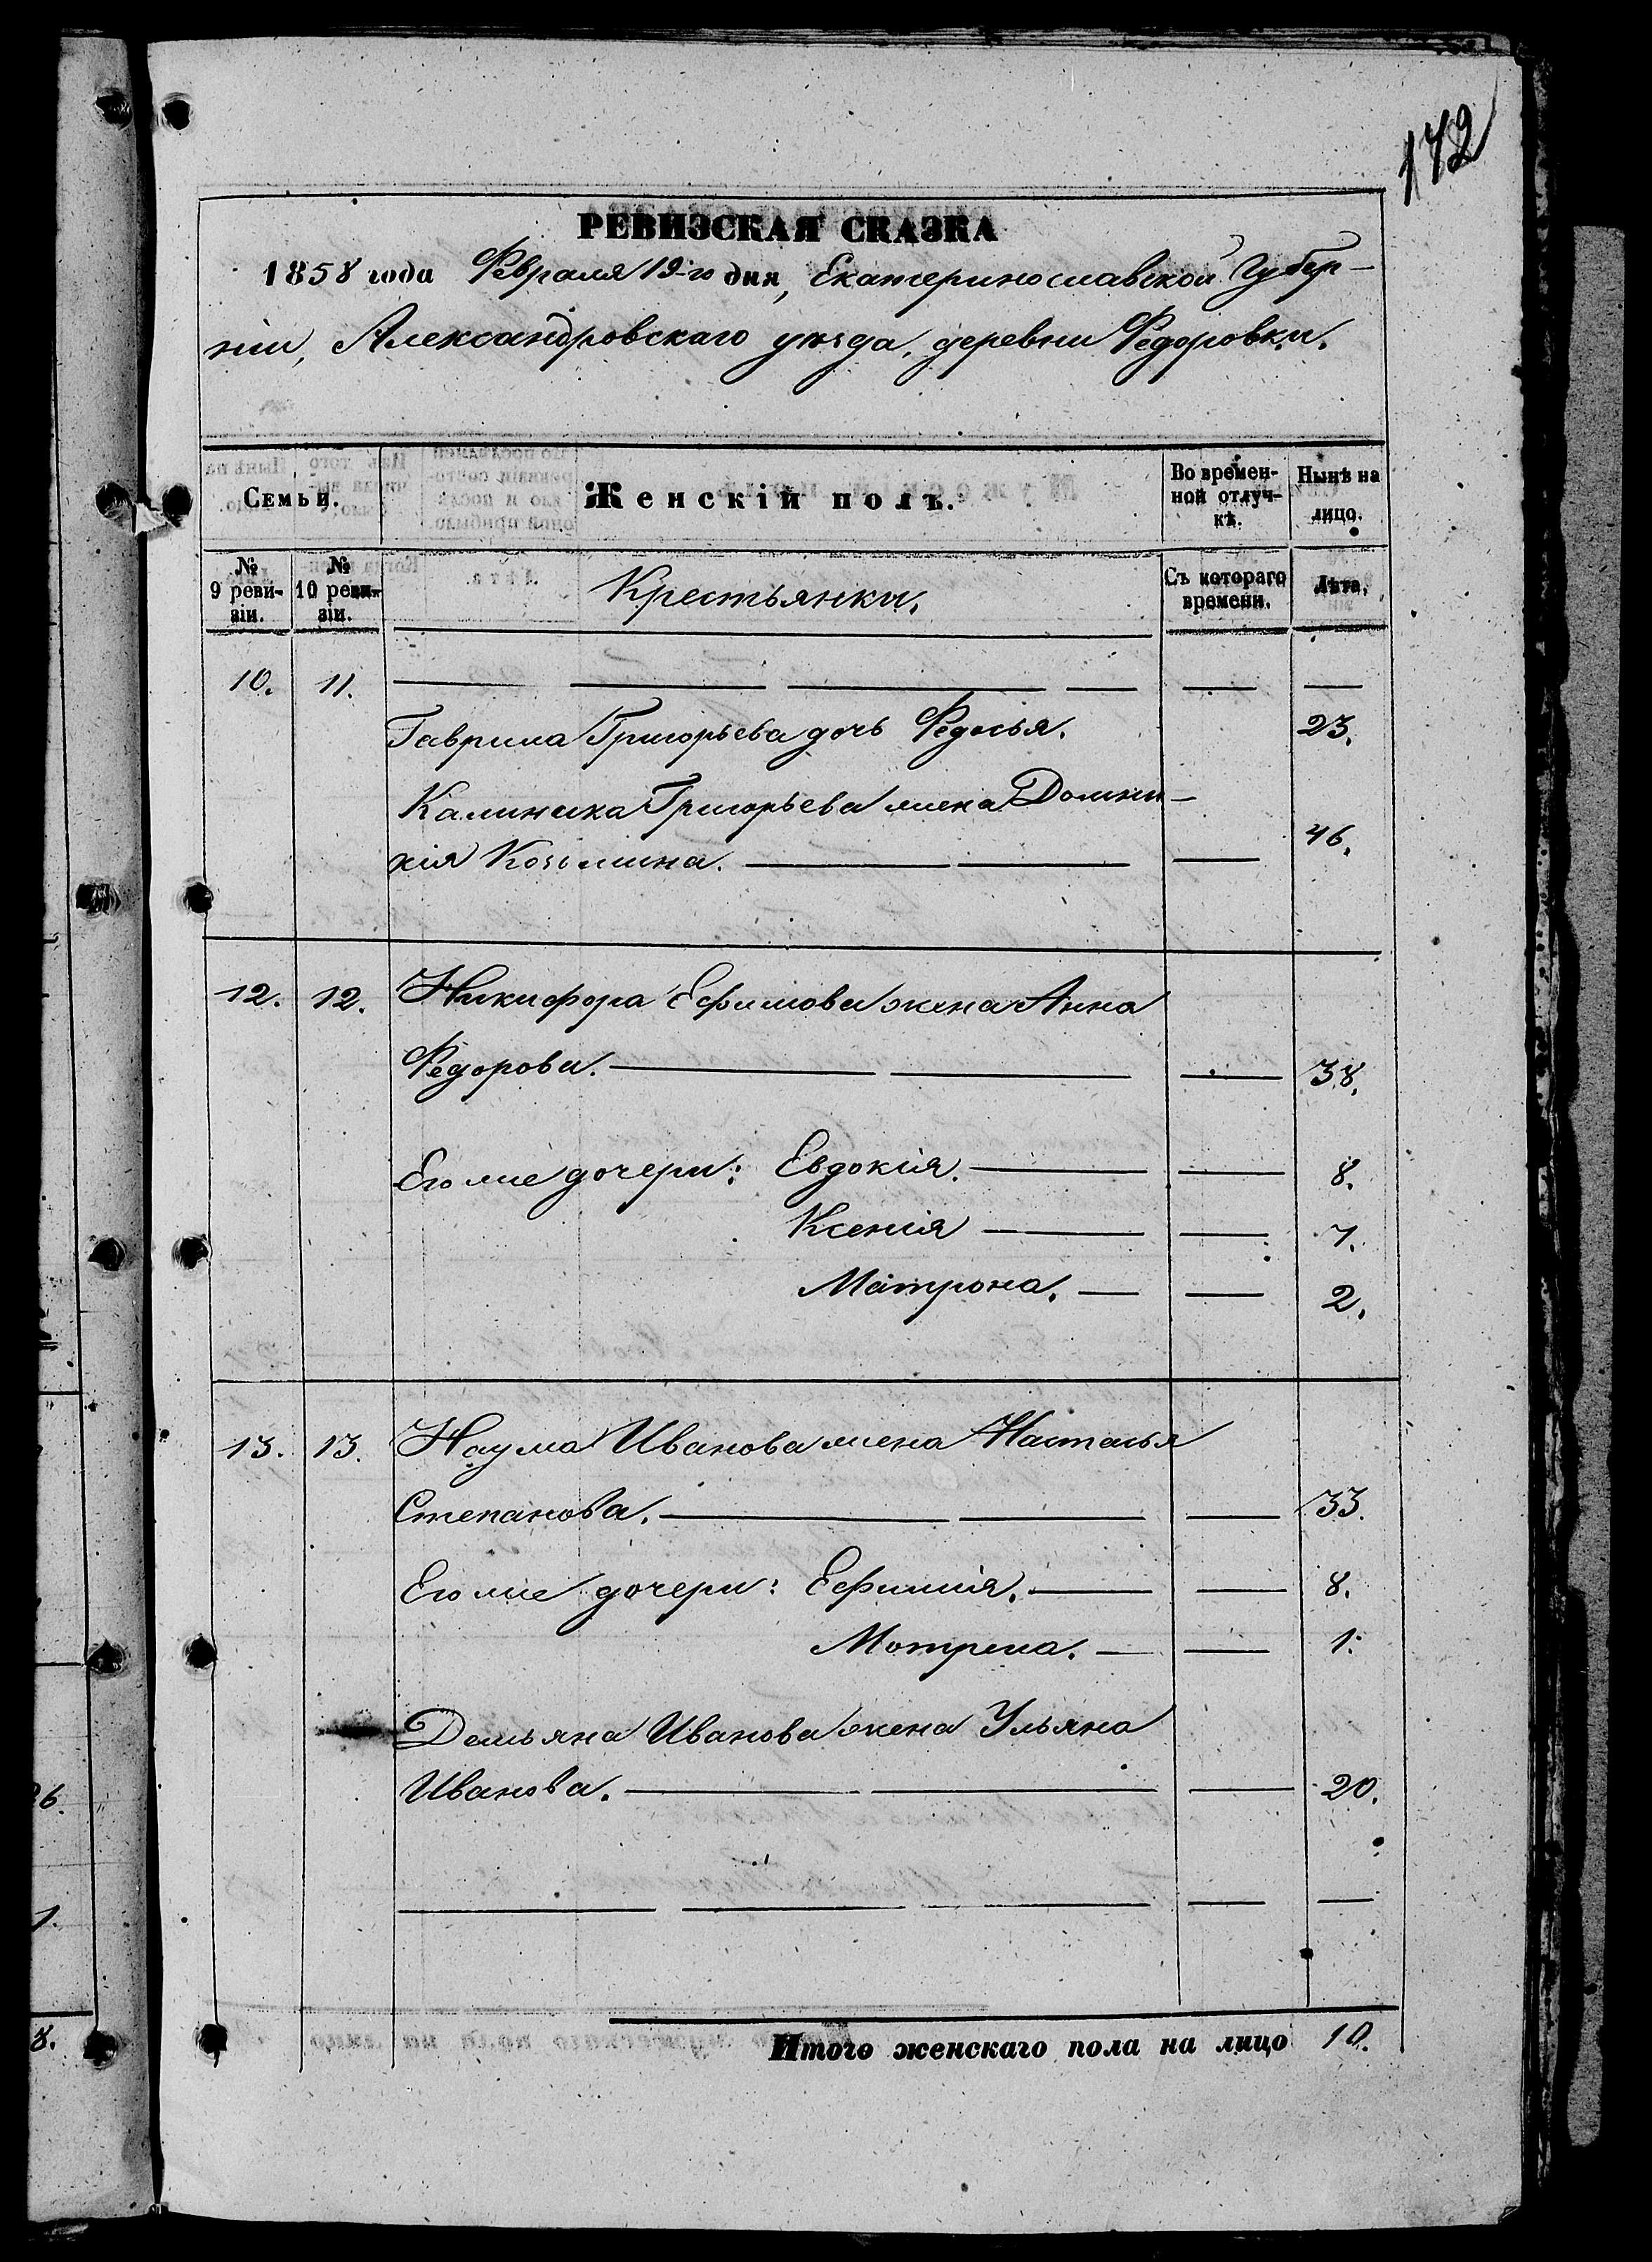 172
РЕВИЗСКАЯ СКАЗКА
1858 года Февраля 19-го дня, Екатеринославской Губер-
нии, Александровскаго уѣзда, деревни Федоровки.
Семьи.
Женскій полъ.
Во времен-
ной отлуч-
кѣ.
Нынѣ на
лицо.
№
9 реви-
зіи.
№
10 реви-
зіи.
Крестьянки.
Съ котораго
времени.
Лѣта.
10. 11.
Гаврила Григорьева дочь Федосья. 23.
Калиника Григорьева жена Домни-
кія Козьмина. 46.
12. 12. Никифора Ефимова жена Анна
Федорова. 38.
Его же дочери: Евдокія. 8.
Ксенія 7.
Матрона. 2.
13. 13. Наума Иванова жена Настасья
Степанова. 33.
Его же дочери: Ефимія. 8.
Мотрена. 1.
Демьяна Иванова жена Ульяна
Иванова. 20.
Итого женскаго пола на лицо 10.
26.
1.
8.